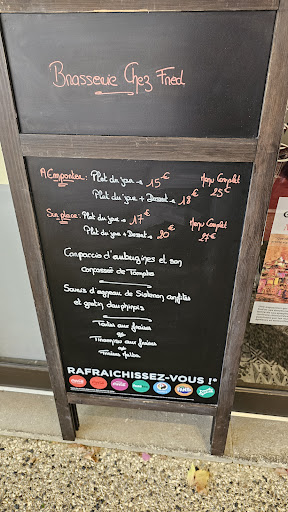 Brasserie Chez Fred
A Emporter: Plat du jour → 15€ Menu Complet
Plat du jour + Dessert → 18€ 25€
Sur place: Plat du jour → 17€ Menu Complet
Plat du jour + Dessert → 20€ 27€
Carpaccio d'aubergines et son
concassé de Tomates
Souris d'agneau de Sisteron confites
et gratin dauphinois
Tartes aux fraises
ou
Tiramisu aux fraises
ou
RAFRAICHISSEZ-VOUS !*